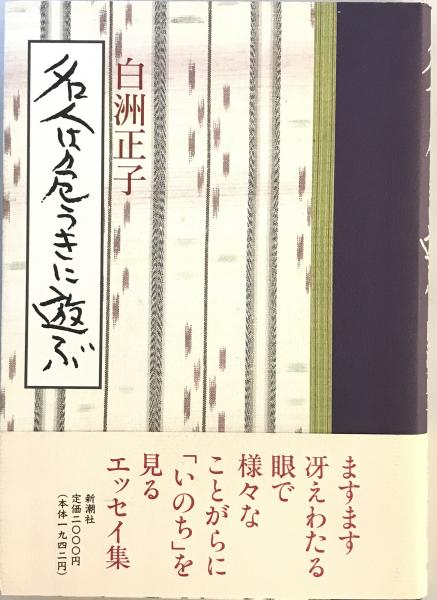 名人は危うきに遊ぶ
白洲正子
ますます
冴えわたる
眼で
様々な
ことがらに
「いのち」を
見る
エッセイ集
新潮社
定価二〇〇〇円
（本体一九四二円）